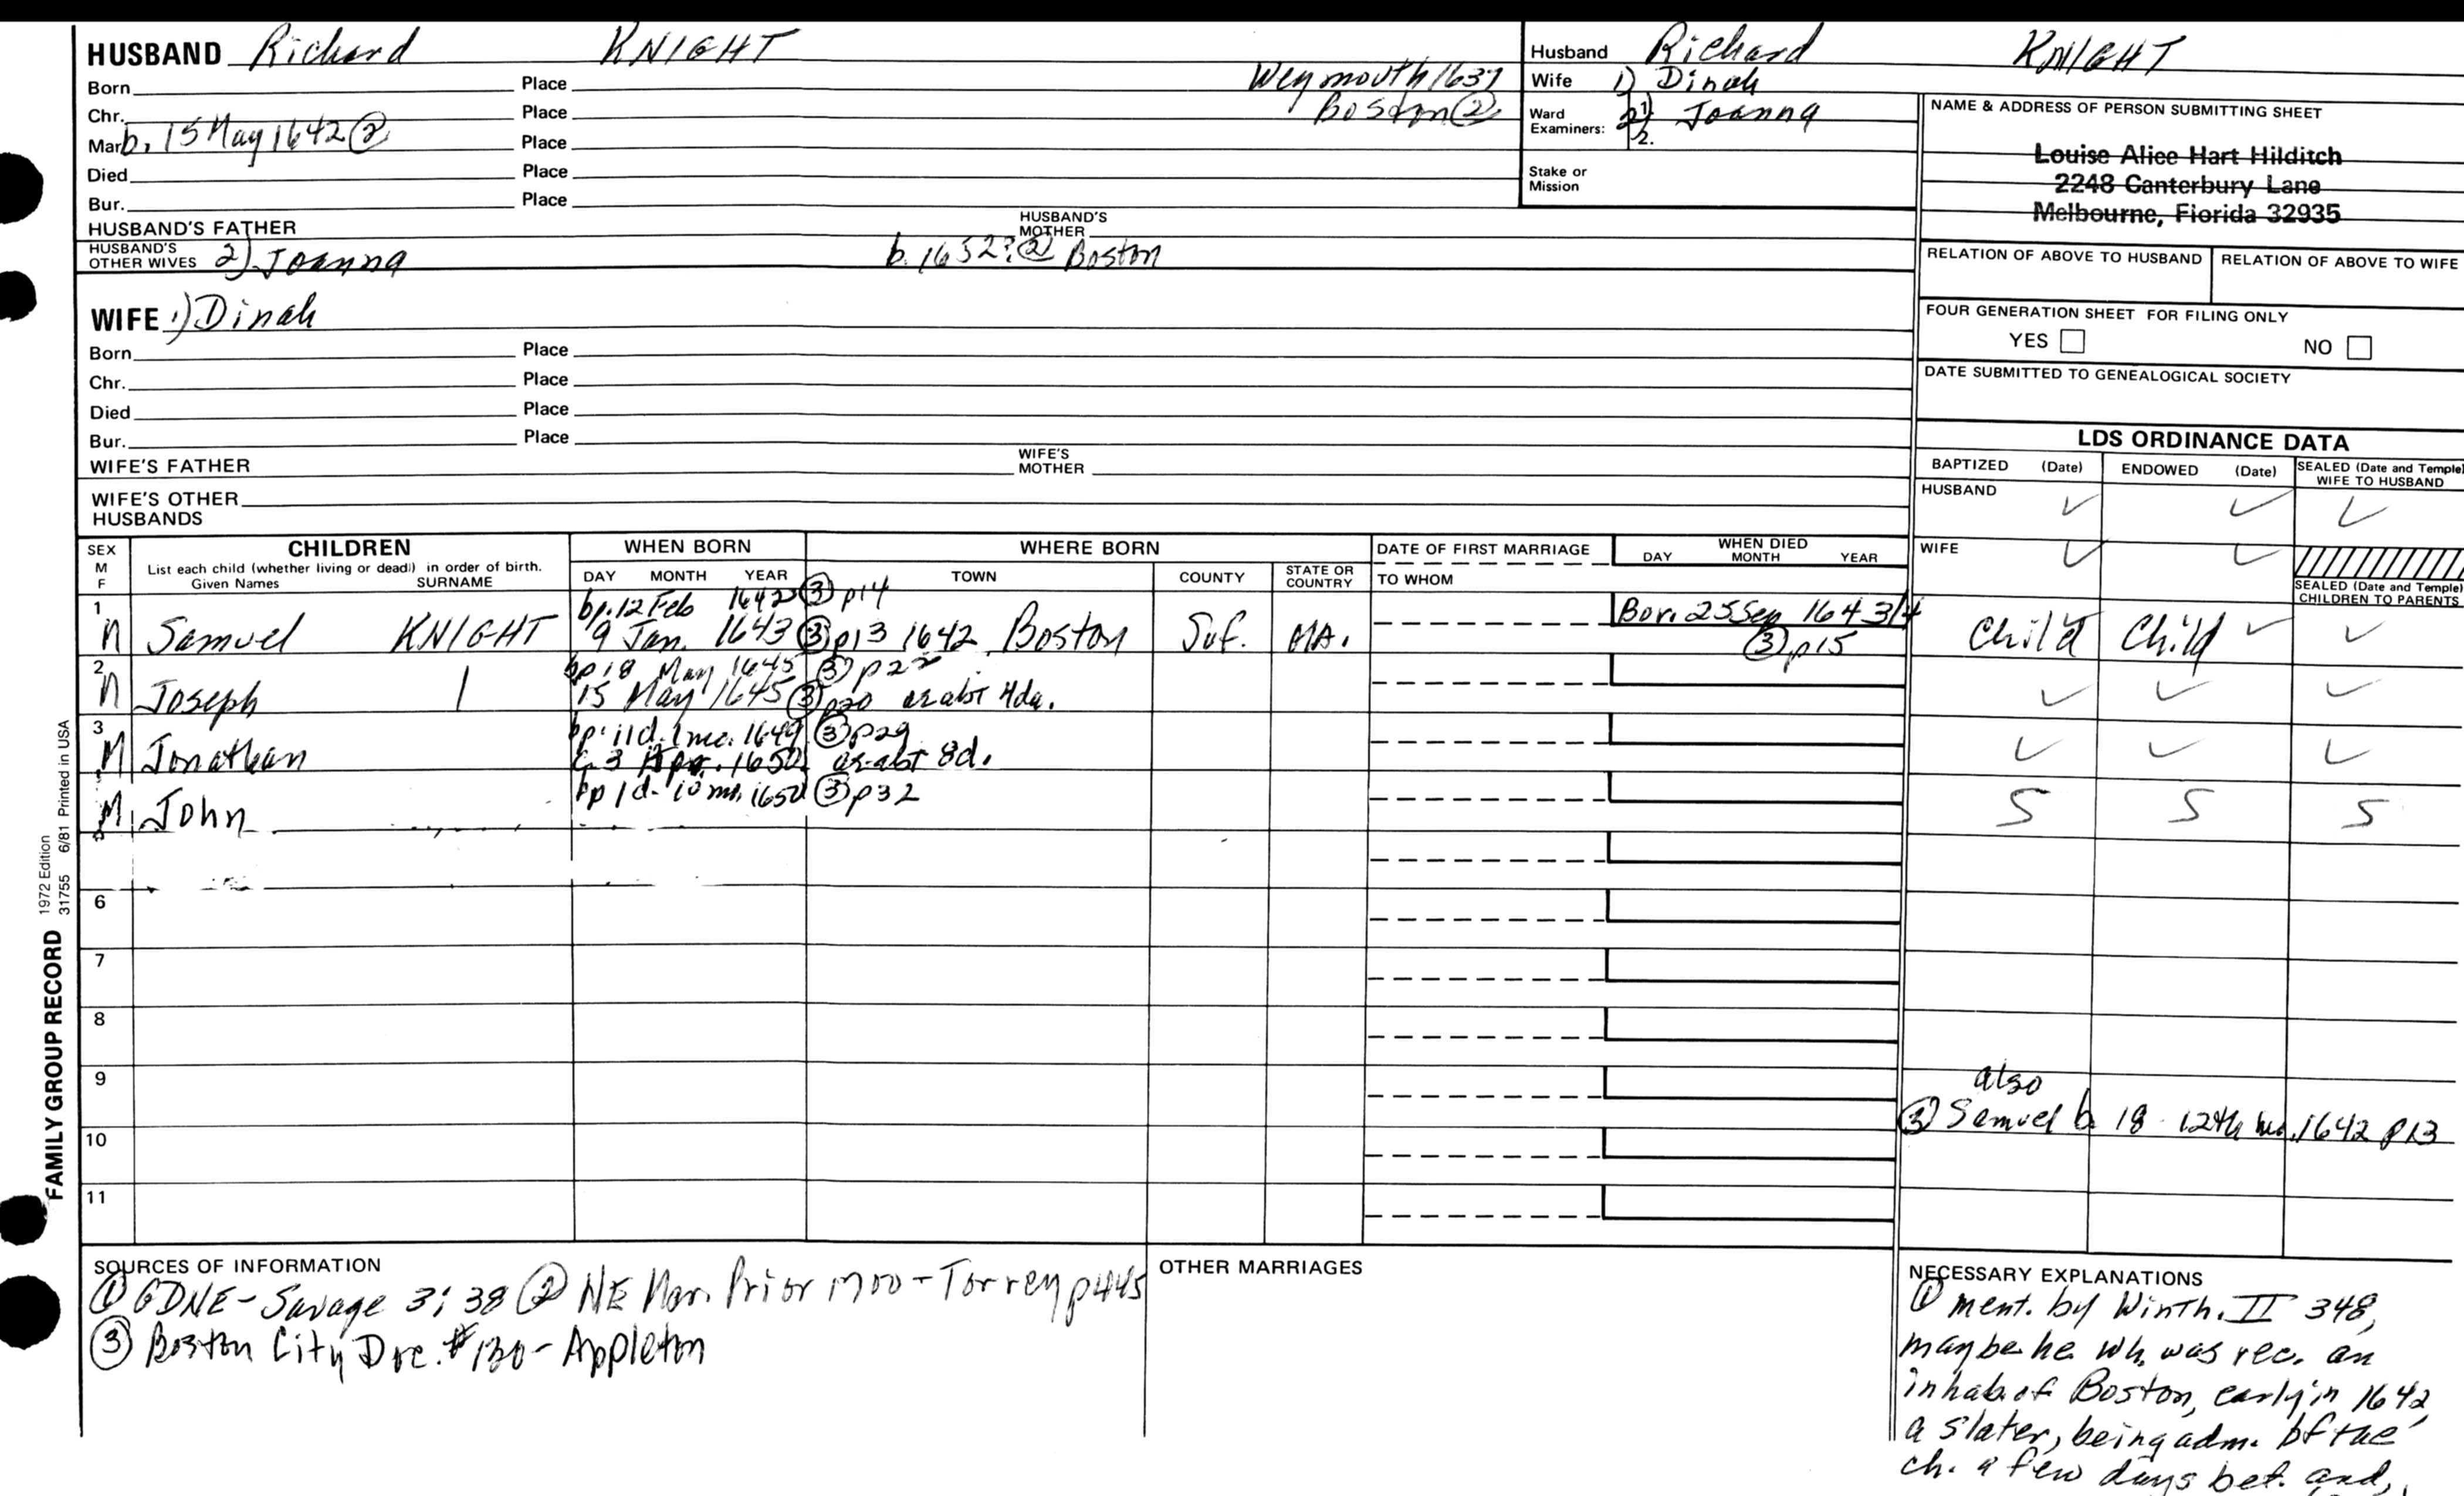 HUSBAND Richard KNIGHT
Born Place Weymouth 1637
Chr. Place Boston ②
Mar. b. 15 May 1642 ② Place
Died Place
Bur. Place
HUSBAND'S FATHER HUSBAND'S MOTHER
HUSBAND'S OTHER WIVES 2) Joanna b. 1652? ② Boston
WIFE 1) Dinah
Born Place
Chr. Place
Died Place
Bur. Place
WIFE'S FATHER WIFE'S MOTHER
WIFE'S OTHER HUSBANDS
Husband Richard KNIGHT
Wife 1) Dinah
Ward Examiners: 1. 2) Joanna
2.
Stake or Mission
NAME & ADDRESS OF PERSON SUBMITTING SHEET
Louise Alice Hart Hilditch
2248 Canterbury Lane
Melbourne, Florida 32935
RELATION OF ABOVE TO HUSBAND RELATION OF ABOVE TO WIFE
FOUR GENERATION SHEET FOR FILING ONLY
YES NO
DATE SUBMITTED TO GENEALOGICAL SOCIETY
LDS ORDINANCE DATA
BAPTIZED (Date) ENDOWED (Date) SEALED (Date and Temple) WIFE TO HUSBAND
HUSBAND
WIFE
SEALED (Date and Temple) CHILDREN TO PARENTS
SEX M F CHILDREN WHEN BORN WHERE BORN DATE OF FIRST MARRIAGE WHEN DIED
List each child (whether living or dead) in order of birth.
Given Names SURNAME DAY MONTH YEAR TOWN COUNTY STATE OR COUNTRY TO WHOM DAY MONTH YEAR
1 bp. 12 Feb 1642 ③ p14 Bur. 25 Sep 1643/4
M Samuel KNIGHT 9 Jan. 1643 ③ p13 1642 Boston Suf. MA. ③ p15 Child Child
2 bp 18 May 1645 ③ p22
M Joseph | 15 May 1645 ③ p20 as abt 4da.
3 bp. 11d. 1mo. 1649 ③ p29
M Jonathan 3 Apr. 1650 as abt 8d.
bp 1d. 10 mo. 1650 ③ p32
M John S S S
6
7
8
9
10
11
also
③ Samuel b 18 12th mo. 1642 p13
FAMILY GROUP RECORD
1972 Edition
31755 6/81 Printed in USA
SOURCES OF INFORMATION
① GDNE - Savage 3:38 ② NE Mar. Prior 1700 - Torrey p445
③ Boston City Doc. #130 - Appleton
OTHER MARRIAGES
NECESSARY EXPLANATIONS
① ment. by Winth. II 348,
maybe he wh. was rec. an
inhab. of Boston, early in 1642
a slater, being adm. of the
ch. a few days bef. and,